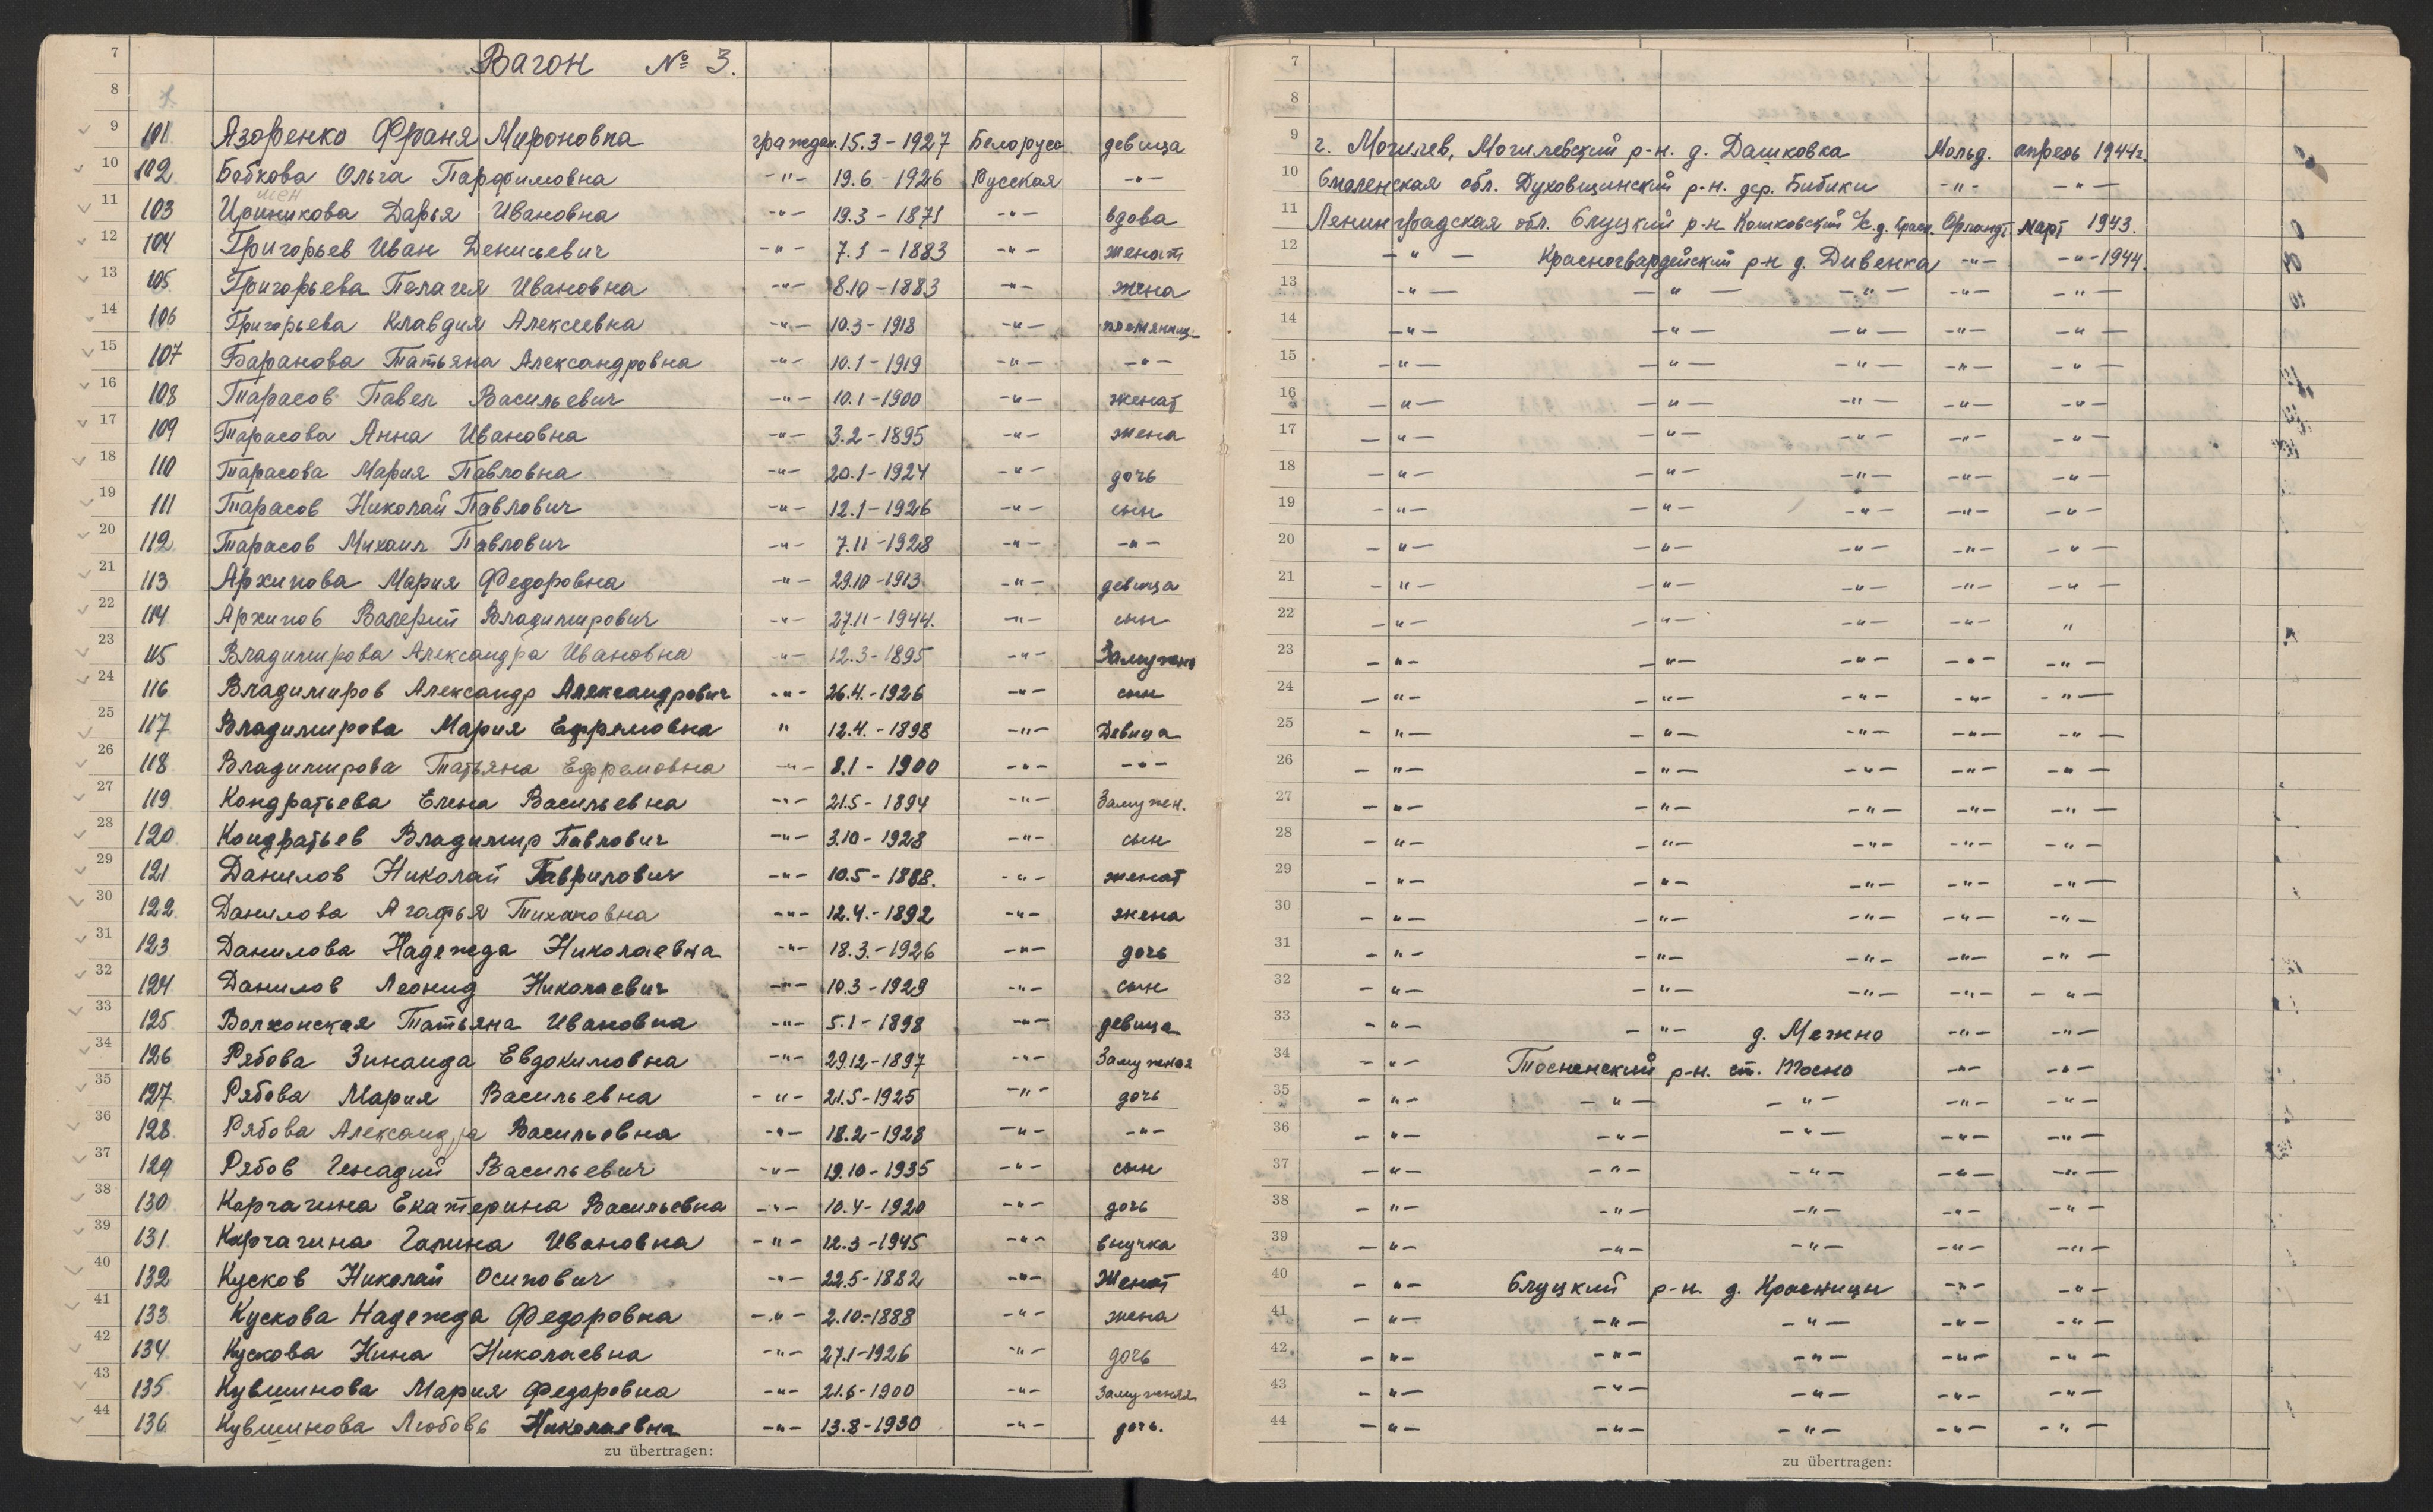 7 Вагон № 3. 7
8 8
9 101 Азоренко Франя Мироновна граждан. 15.3-1927 Белорусс девица 9 г. Могилев, Могилевский р-н. д. Дашковка Мольд. апрель 1944г.
10 102 Бобкова Ольга Парфимовна -"- 19.6-1926 Русская -"- 10 Смаленская обл. Духовщинский р-н. дер. Бибики -"- -"-
11 103 Ивановна 19.3-1871 -"- вдова 11 Ленинградская обл. Слуцкий р-н март 1943.
12 104 Григорьев Иван Денисьевич -"- 7.1-1883 -"- женат 12 -"- Красногвардейский р-н д. Дивенка -"- -"-1944.
13 105 Григорьева Пелагея Ивановна -"- 8.10-1883 -"- жена 13 -"- -"- -"- -"- -"-
14 106 Григорьева Клавдия Алексеевна -"- 10.3-1918 -"- племянниц. 14 -"- -"- -"- -"- -"-
15 107 Баранова Татьяна Александровна -"- 10.1-1919 -"- -"- 15 -"- -"- -"- -"- -"-
16 108 Тарасов Павел Васильевич -"- 10.1-1900 -"- женат 16 -"- -"- -"- -"- -"-
17 109 Тарасова Анна Ивановна -"- 3.2-1895 -"- жена 17 -"- -"- -"- -"- -"-
18 110 Тарасова Мария Павловна -"- 20.1-1924 -"- дочь 18 -"- -"- -"- -"- -"-
19 111 Тарасов Николай Павлович -"- 12.1-1926 -"- сын 19 -"- -"- -"- -"- -"-
20 112 Тарасов Михаил Павлович -"- 7.11-1928 -"- -"- 20 -"- -"- -"- -"- -"-
21 113 Архипова Мария Федоровна -"- 29.10-1913 -"- девица 21 -"- -"- -"- -"- -"-
22 114 Архипов Валерий Владимирович -"- 27.11-1944. -"- сын 22 -"- -"- -"- -"- "
23 115 Владимирова Александра Ивановна -"- 12.3-1895 -"- Замужно 23 -"- -"- -"- -"- -"-
24 116 Владимиров Александр Александрович -"- 26.4.-1926 -"- сын 24 -"- -"- -"- -"- -"-
25 117 Владимирова Мария Ефремовна " 12.4.-1898 -"- Девица 25 -"- -"- -"- -"- -"-
26 118 Владимирова Татьяна Ефремовна -"- 8.1-1900 -"- -"- 26 -"- -"- -"- -"- -"-
27 119 Кондратьева Елена Васильевна -"- 21.5-1894 -"- Замужен. 27 -"- -"- -"- -"- -"-
28 120 Кондратьев Владимир Павлович -"- 3.10-1928 -"- сын 28 -"- -"- -"- -"- -"-
29 121 Данилов Николай Гаврилович -"- 10.5-1888. -"- женат 29 -"- -"- -"- -"- -"-
30 122 Данилова Агафья Тихоновна -"- 12.4.-1892 -"- жена 30 -"- -"- -"- -"- -"-
31 123 Данилова Надежда Николаевна -"- 18.3.-1926 -"- дочь 31 -"- -"- -"- -"- -"-
32 124 Данилов Леонид Николаевич -"- 10.3-1929 -"- сын 32 -"- -"- -"- -"- -"-
33 125 Волхонская Татьяна Ивановна -"- 5.1-1898 -"- девица 33 -"- -"- д. Межно -"- -"-
34 126 Рябова Зинаида Евдокимовна -"- 29.12-1897 -"- Замужняя 34 -"- Тосненский р-н. ст. Тосно -"- -"-
35 127 Рябова Мария Васильевна -"- 21.5-1925 -"- дочь 35 -"- -"- -"- -"- -"-
36 128 Рябова Александра Васильевна -"- 18.2-1928 -"- -"- 36 -"- -"- -"- -"- -"-
37 129 Рябов Генадий Васильевич -"- 19.10-1935 -"- сын 37 -"- -"- -"- -"- -"-
38 130 Карчагина Екатерина Васильевна -"- 10.4-1920 -"- дочь 38 -"- -"- -"- -"- -"-
39 131 Карчагина Галина Ивановна -"- 12.3-1945 -"- внучка 39 -"- -"- -"- -"- -"-
40 132 Кусков Николай Осипович -"- 22.5-1882 -"- Женат 40 -"- Слуцкий р-н. д. Красницы -"- -"-
41 133 Кускова Надежда Федоровна -"- 2.10-1888 -"- жена 41 -"- -"- -"- -"- -"-
42 134 Кускова Нина Николаевна -"- 27.1-1926 -"- дочь 42 -"- -"- -"- -"- -"-
43 135 Кувшинова Мария Федаровна -"- 21.6-1900 -"- Замужняя 43 -"- -"- -"- -"- -"-
44 136 Кувшинова Любовь Николаевна -"- 13.8-1930 -"- дочь. 44 -"- -"- -"- -"- -"-
zu übertragen: zu übertragen: